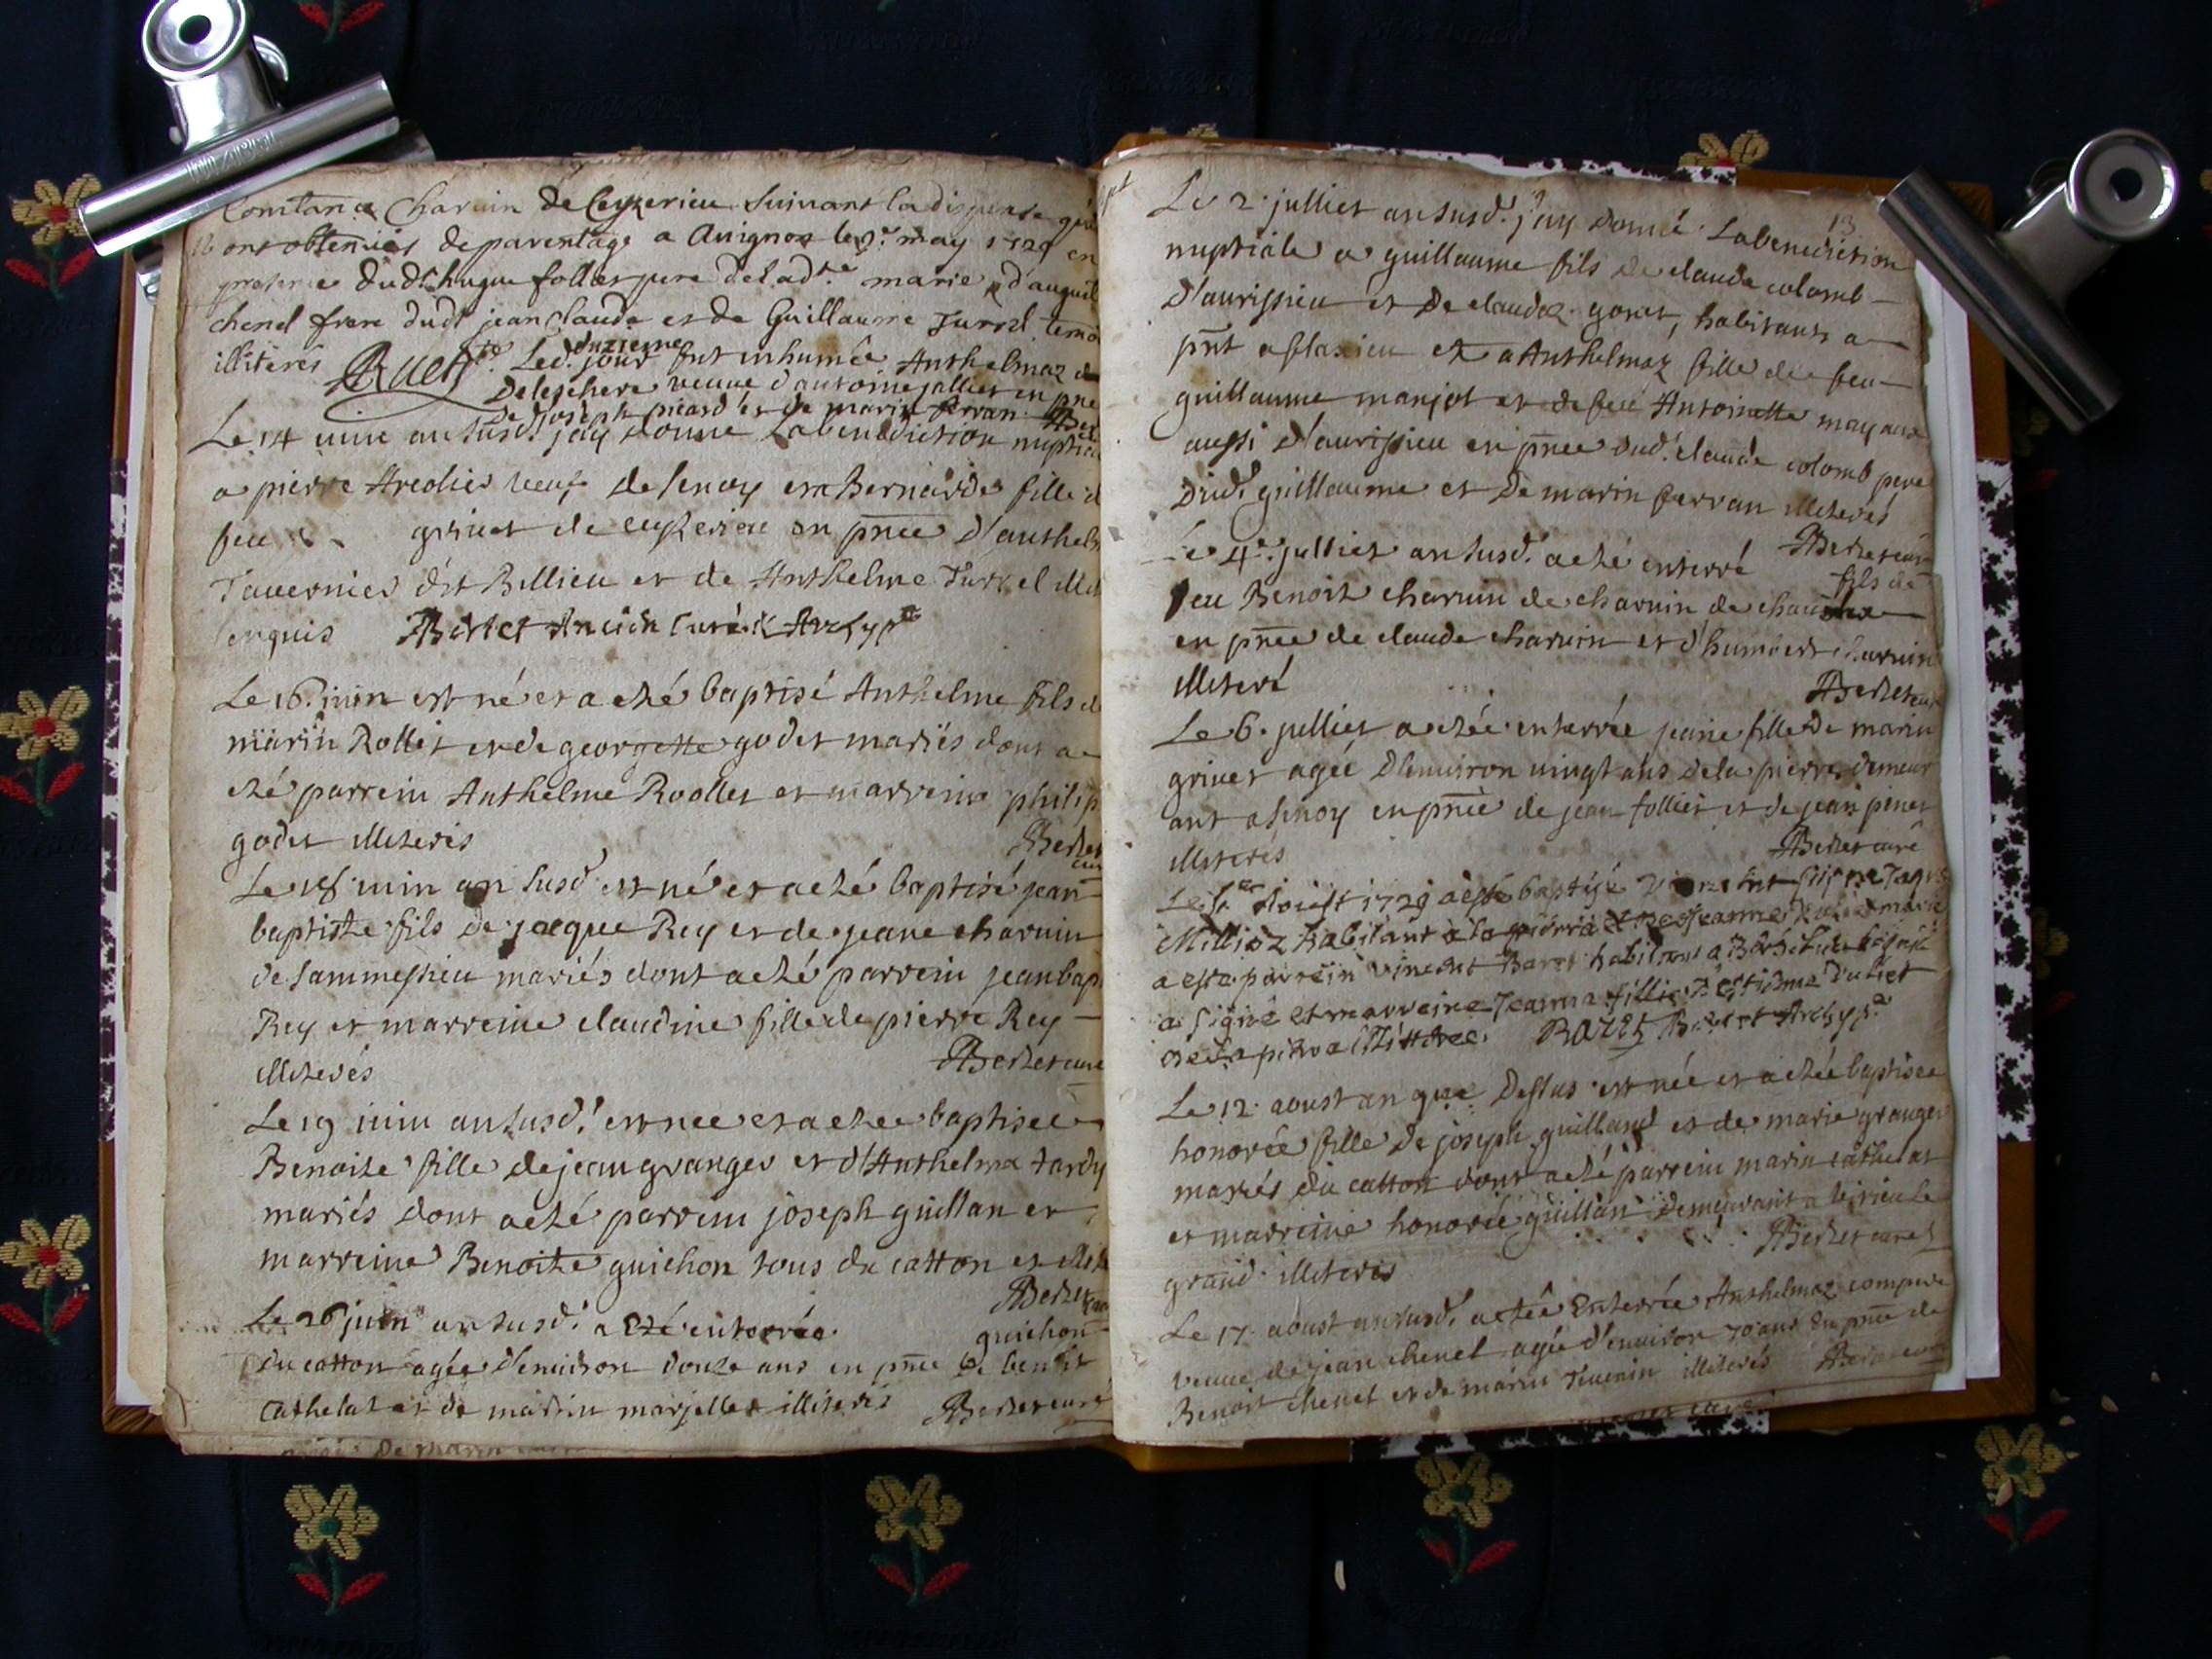 Constance Charuin de Ceyzerieu suivant la dispense
12 ont obtenües de parentage a Auignon le may 1729 en
dudt hugue follier pere de ladte marie
chenel frere dudt jean claude et de Guillaume Turrel
illiteres Led. jour onzieme fut inhumée Anthelmaz
veuue d'antoine jallier en pnce
de joseph picard et de marin ferran
Le 14 iuin an susd. j'ay donné La benediction
a pierre veuf de senoy et a Bernarde fille d
feu griuet de ceyzerieu en pnce d'anthel
Tauernier d'it Billieu et de Anthelme Turrel
enquis Berlet Ancien Curé & Archypr
Le 16. iuin est né et a eté baptisé Anthelme fils d
marin Rollet et de georgette godet mariés dont a
eté parrein Anthelme Roollet et marreine philip
godet illiteris Berlet
cur
Le 18 iuin an susd. est né et a eté baptisé jean
baptiste fils de jacque Rey et de jeane charuin
de sammessieu mariés dont a eté parrein jean bap
Rey et marreine claudine fille de pierre Rey
illiterés Berlet curé
Le 19 iuin an susd. est nee et a etee baptisee
Benoite fille de jean granger et d'Anthelma tardy
mariés dont a eté parrein joseph guillan et
marreine Benoite guichon tous du catton et
Berlet
Le 26 juin an susd. a eté enterrée guichon
du catton agée d'enuiron douze ans en pnce de benoit
Cathelat et de marin marjollet illiteris Berlet curé
13
Le 2. julliet an susd. j'ay donné La benediction
nuptiale a guillaume fils de claude colomb
d'aurissieu et de claudaz goret, habitants a
pnt a flaxieu et a Anthelmaz fille de feu
guillaume marjot et de feue Antoinette
aussi d'aurissieu en pnce dud. claude colomb pere
dud. guillaume et de marin ferran illiterés
Berlet curé
Le 4e. julliet an susd. a eté enterré fils de
feu Benoit charuin de charuin de
en pnce de claude charuin et d'humbert charuin
illiteré Berlet curé
Le 6. julliet a etée enterrée jeane fille de marin
griuet agée d'enuiron uingt ans de la pierre demeur
ant a senoy en pnce de jean follier et de jean pinet
illiterés Berlet curé
Le 1er Aoust 1729 a esté baptizé Vincent fils de
Millioz habitant à la pierre et de Jeanne
a esté parrein Vincent Baret habitant a
a signé et marreine Jeanne fillie d'estiene
de la pierre illittree. Berlet Archypr
Le 12. aoust an que dessus est née et a etée baptisee
honorée fille de joseph guilland et de marie granger
mariés du catton dont a eté parrein marin cathelat
et marreine honorée guillan demeurant a
grand. illiteris Berlet curé
Le 17. aoust an susd. a etée Enterrée Anthelmaz compere
veuue de jean chenel agée d'enuiron 70 ans En pnce de
Benoit chenel et de marin Teuenin illiterés Berlet curé